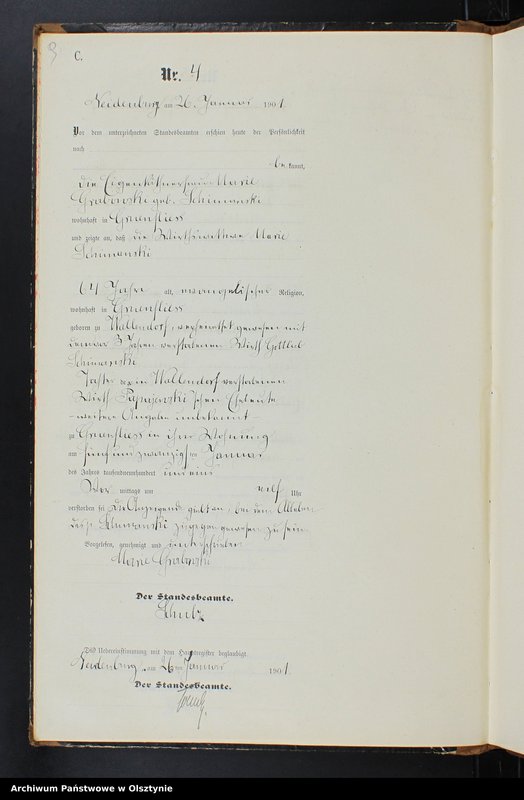 C.
Nr. 4
Neidenburg am 26. Januar 1901.
Vor dem unterzeichneten Standesbeamten erschien heute der Persönlichkeit
nach
be kannt,
die Eigenkäthnerfrau Marie
Grabowski geb. Schimanski
wohnhaft in Gruenfliess
und zeigte an, daß die Wirthswittwe Marie
Schimanski
64 Jahre alt, evangelischer Religion,
wohnhaft in Gruenfliess
geboren zu Wallendorf, verheirathet gewesen mit
3 Jahren verstorbenen Wirth Gottlieb
Schimanski
Tochter der in Wallendorf verstorbenen
Wirth schen Eheleute
weitere Angabe unbekannt
zu Gruenfliess in ihrer Wohnung
am fünf und zwanzigsten Januar
des Jahres tausendneunhundert und eins
Vor mittags um elf Uhr
verstorben sei. Die Anzeigende giebt an, bei dem Ableben
der p. Schimanski zugegen gewesen zu sein.
Vorgelesen, genehmigt und unterschrieben
Marie Grabowski
Der Standesbeamte.
Schulz
Die Uebereinstimmung mit dem Hauptregister beglaubigt
Neidenburg am 26 ten Januar 1901.
Der Standesbeamte.
Schulz
Archiwum Państwowe w Olsztynie